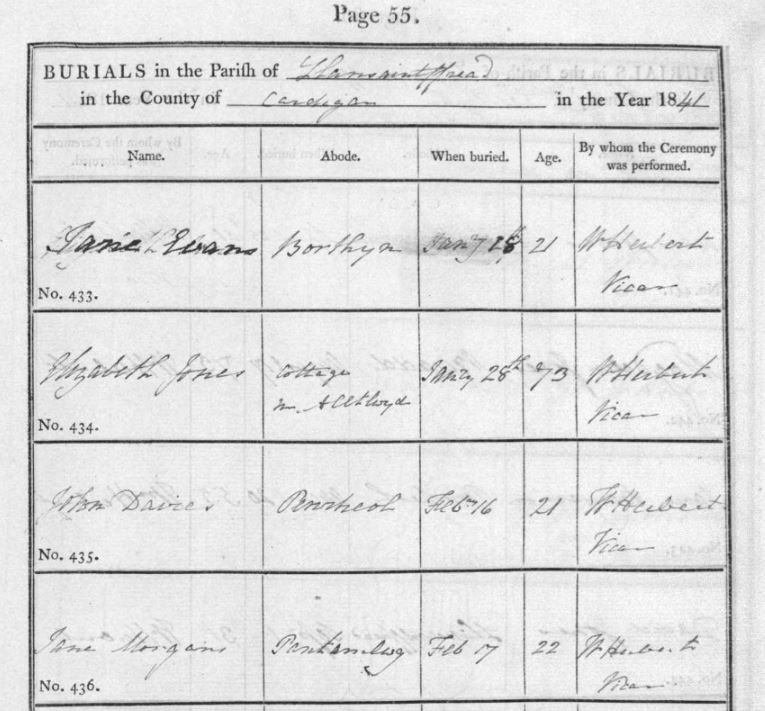 Page 55.
BURIALS in the Parish of Llansaintffread
in the County of Cardigan in the Year 1841
Name. Abode. When buried. Age. By whom the Ceremony was performed.
Jane Evans Borthyn Jany 28th 21 W Herbert
No. 433. Vicar
Elizabeth Jones Cottage Jany 28th 73 W Herbert
nr Alltlwyd Vicar
No. 434.
John Davies Penrheol Feb 16 21 W Herbert
No. 435. Vicar
Jane Morgans Feb 17 22 W Herbert
No. 436. Vicar